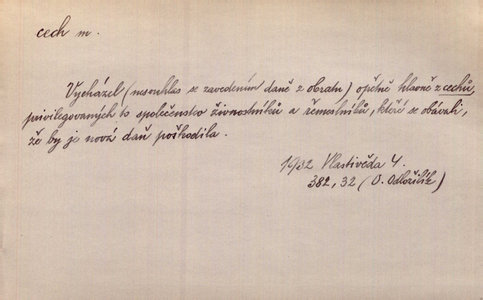 cech m.
Vycházel (nesouhlas se zavedením daně z obratu) opětně hlavně z cechů,
privilegovaných to společenstev živnostníků a řemeslníků, kteří se obávali,
že by je nová daň poškodila.
1932 Vlastivěda 4.
382, 32 (O. Odložilík)